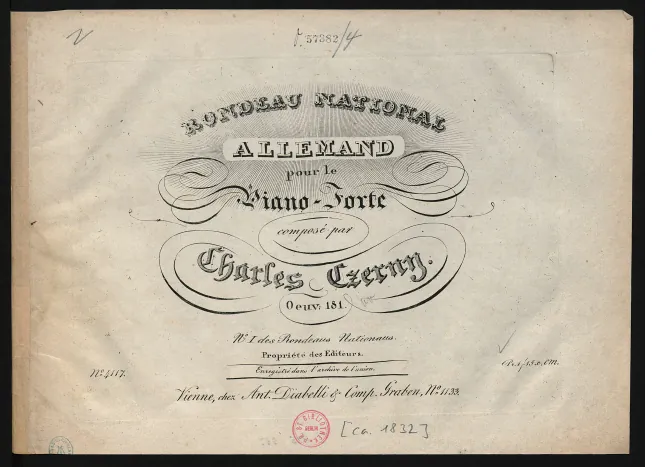 2
37882/4
RONDEAU NATIONAL
ALLEMAND
pour le
Piano-Forte
composé par
Charles Czerny.
Oeuv: 181.
No. I. des Rondeaux Nationaux.
Propriété des Editeurs.
Enregistré dans l'archive de l'union.
No. 4117.
Vienne, chez Ant. Diabelli & Comp. Graben, No. 1133.
[ca. 1832]